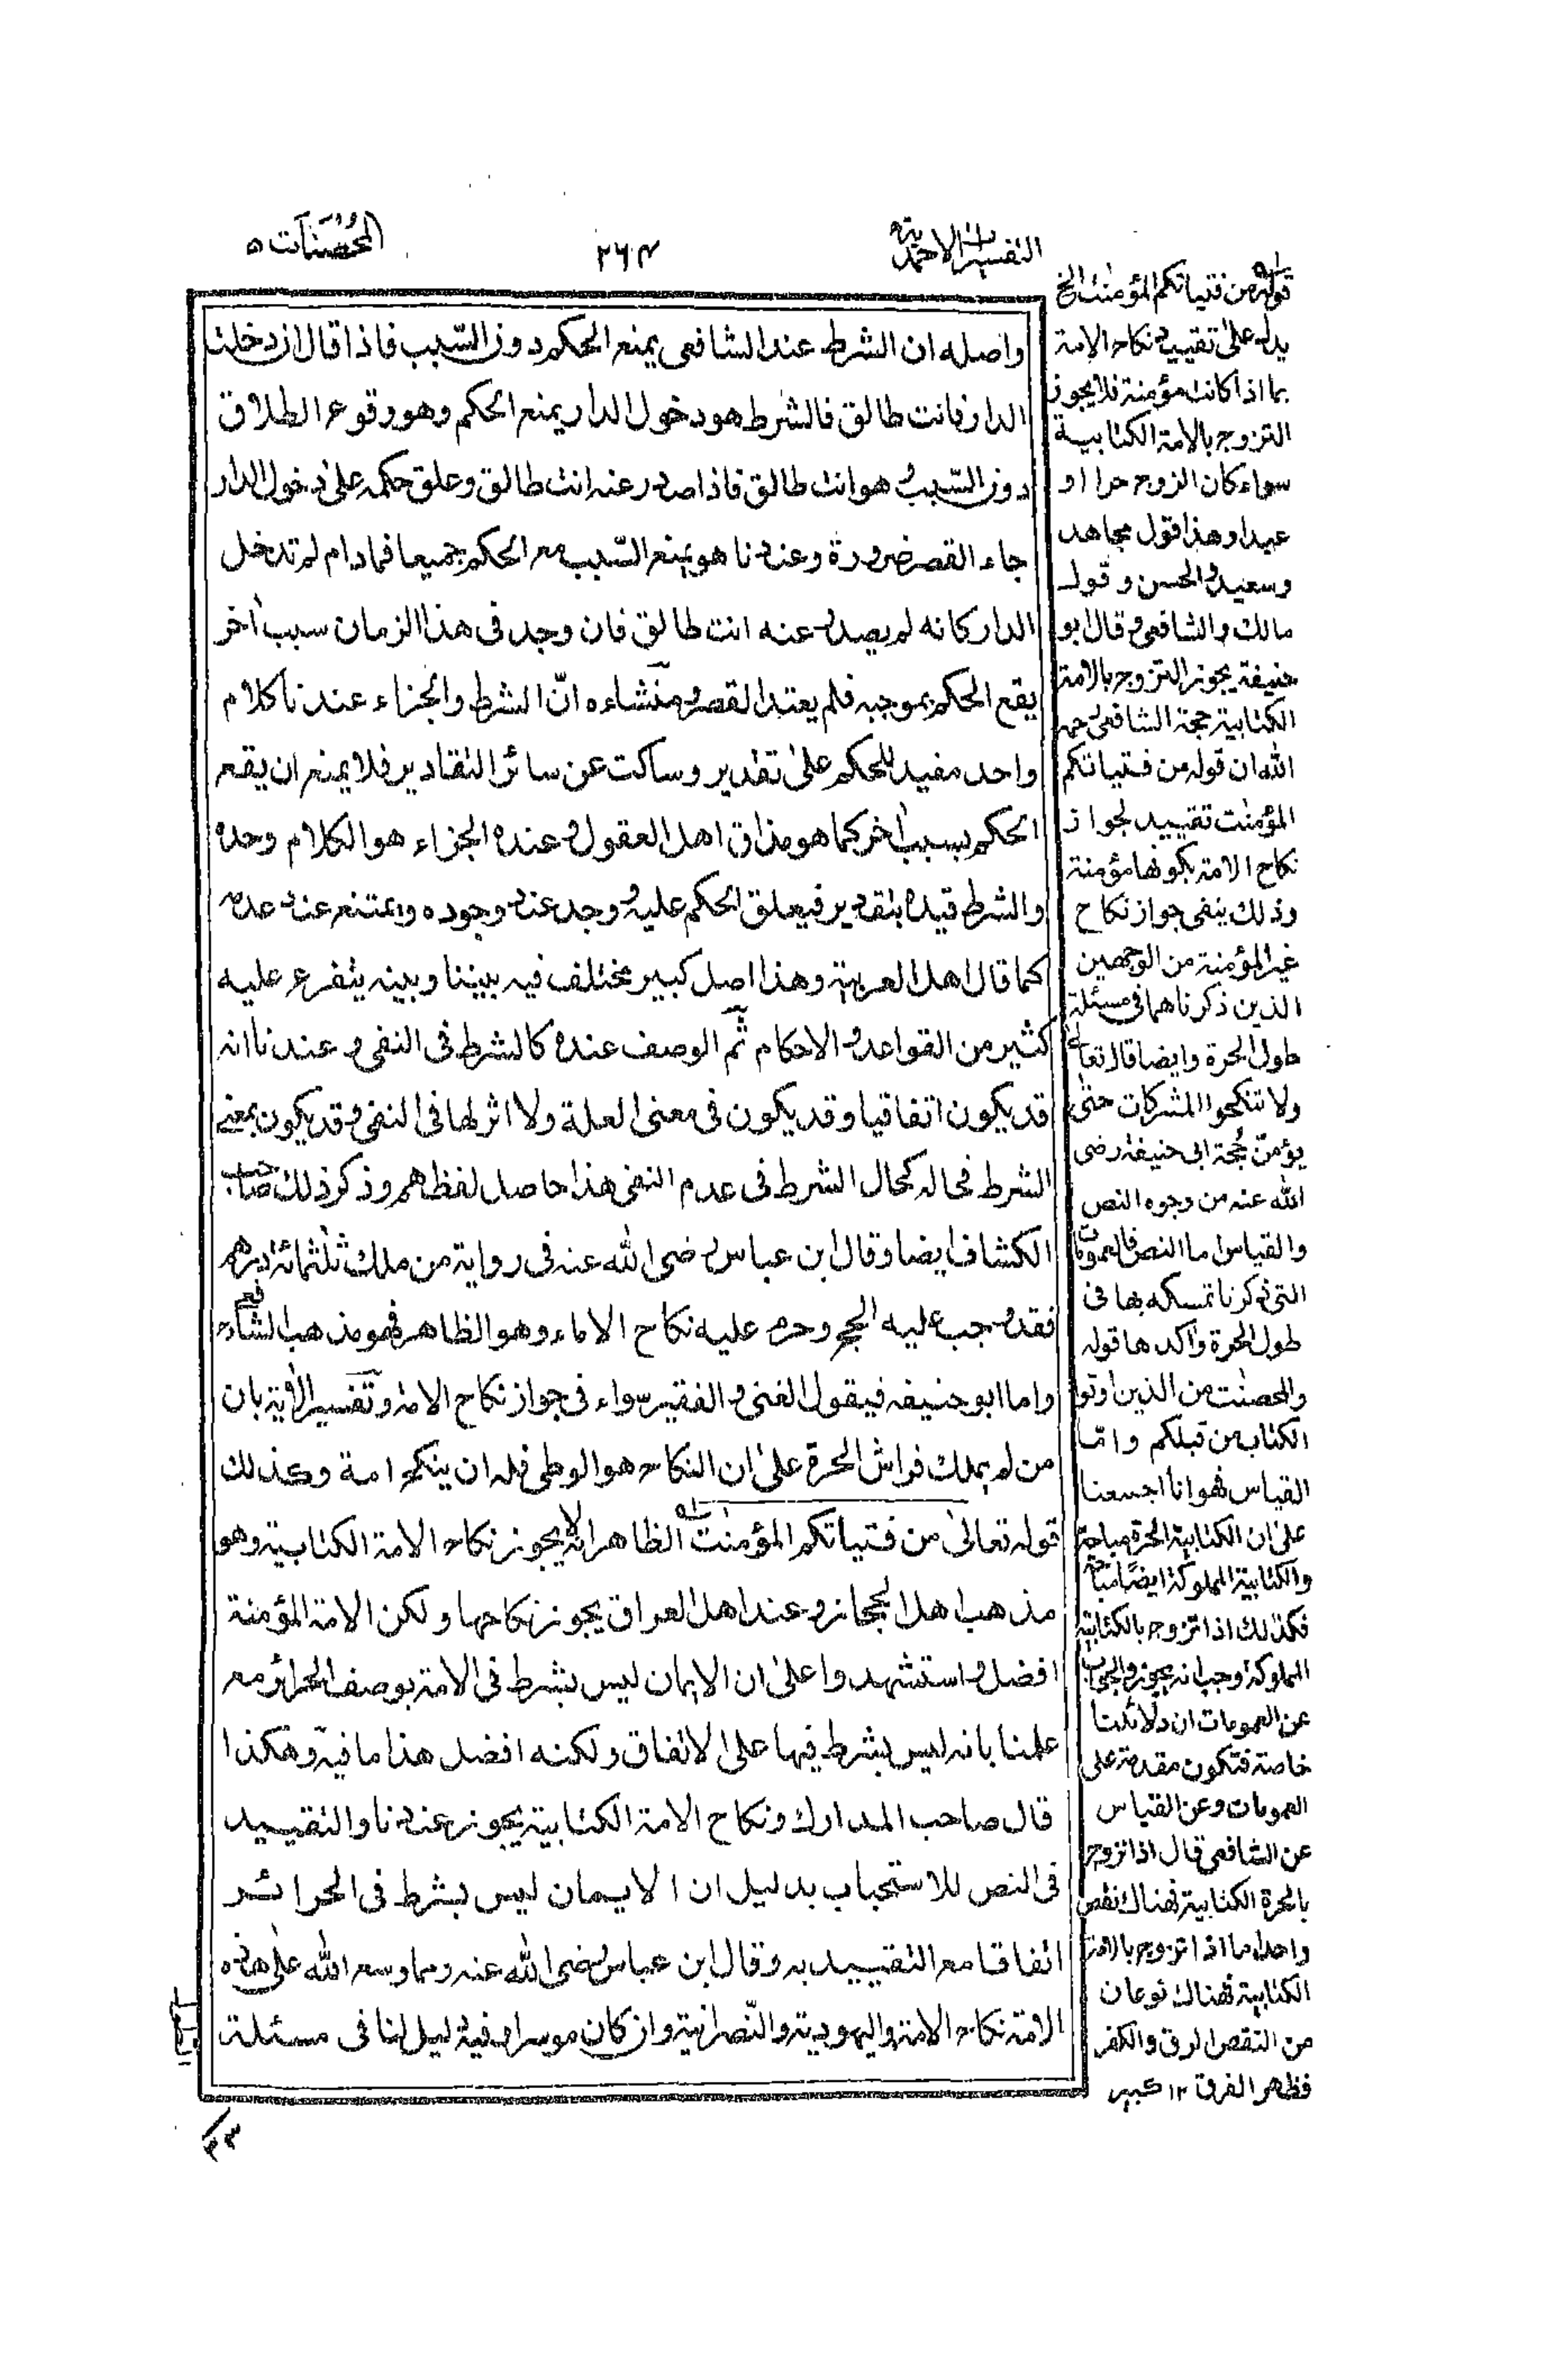 التفسيرات الاحمدية
٢٦٤
المحصنات ٥
واصله ان الشرط عند الشافعى يمنع الحكم دون السّبب فاذا قال ان دخلت
الدار فانت طالق فالشرط هو دخول الدار يمنع الحكم وهو وقوع الطلاق
دون السّبب و هو انت طالق فاذا صدر عنه انت طالق وعلق حكمه على دخول الدار
جاء القصر ضرورة وعندنا هو يمنع السّبب مع الحكم جميعا فمادام لم تدخل
الدار كانه لم يصدر عنه انت طالق فان وجد فى هذا الزمان سبب اٰخر
يقع الحكم بموجبه فلم يعتد القصر ومنشاءه انّ الشرط والجزاء عندنا كلام
واحد مفيد للحكم على تقدير وساكت عن سائر التقادير فلا يمنع ان يقع
الحكم بسبب اٰخر كما هو مذاق اهل العقول و عنده الجزاء هو الكلام وحده
والشرط قيد له بتقدير فيعلق الحكم عليه و وجد عند وجوده وامتنع عند عدمه
كما قال اهل العربية وهذا اصل كبير مختلف فيه بيننا وبينه يتفرع عليه
كثير من القواعد و الاحكام ثم الوصف عنده كالشرط فى النفى و عندنا انه
قد يكون اتفاقيا وقد يكون فى معنى العلة ولا اثر لها فى النفى وقد يكون بمعنى
الشرط فحاله كحال الشرط فى عدم النفى هذا حاصل لفظهم وذكر ذلك صاحب
الكشاف ايضا وقال ابن عباس رضى الله عنه فى رواية من ملك ثلثمائة درهم
فقد وجب عليه الحج وحرم عليه نكاح الاماء وهو الظاهر فهو مذهب الشافعى
واما ابو حنيفه فيقول الغنى و الفقير سواء فى جواز نكاح الامة وتفسير الاٰية بان
من لم يملك فراش الحرة على ان النكاح هو الوطى فله ان ينكح امة وكذلك
قوله تعالى من فتياتكم المؤمنٰت الظاهر انه لا يجوز نكاح الامة الكتابية وهو
مذهب اهل الحجاز و عند اهل العراق يجوز نكاحها ولكن الامة المؤمنة
افضل و استشهدوا على ان الايمان ليس بشرط فى الامة بوصف الحرائر مع
علمنا بانه ليس بشرط فيها على الاتفاق ولكنه افضل هذا ما فيه وهكذا
قال صاحب المدارك ونكاح الامة الكتابية يجوز عندنا والتقييد
فى النص للاستحباب بدليل ان الايمان ليس بشرط فى الحرائر
اتفاقا مع التقييد به وقال ابن عباس رضى الله عنه ومما وسع الله على هذه
الامة نكاح الامة واليهودية والنّصرانية وان كان موسرا وفيه دليل لنا فى مسئلة
قوله من فتياتكم المؤمنٰت الخ
يدل على تقييد نكاح الامة
بما اذا كانت مؤمنة فلا يجوز
التزوج بالامة الكتابية
سواء كان الزوج حرا او
عبدا وهذا قول مجاهد
وسعيد و الحسن و قول
مالك والشافعى و قال ابو
حنيفة يجوز التزوج بالامة
الكتابية حجة الشافعى رحمه
الله ان قوله من فتياتكم
المؤمنٰت تقييد لجواز
نكاح الامة بكونها مؤمنة
وذلك ينفى جواز نكاح
غير المؤمنة من الوجهين
الذين ذكرناهما فى مسئلة
طول الحرة وايضا قال تعالى
ولا تنكحوا المشركات حتى
يؤمنّ حُجة ابى حنيفة رضى
الله عنه من وجوه النص
والقياس اما النص فالعمومات
التى ذكرنا تمسكه بها فى
طول الحرة واٰكدها قوله
والمحصنٰت من الذين اوتوا
الكتاب من قبلكم وامّا
القياس فهو انا اجمعنا
على ان الكتابية الحرة مباحة
والكتابية المملوكة ايضًا مباحة
فكذلك اذا تزوج بالكتابية
المملوكة وجب انه يجوز والجواب
عن العمومات ان دلائلنا
خاصة فتكون مقدمة على
العمومات وعن القياس
عن الشافعى قال اذا تزوج
بالحرة الكتابية فهناك نقص
واحد اما اذا تزوج بالامة
الكتابية فهناك نوعان
من النقص الرق والكفر
فظهر الفرق ١٢ كبير